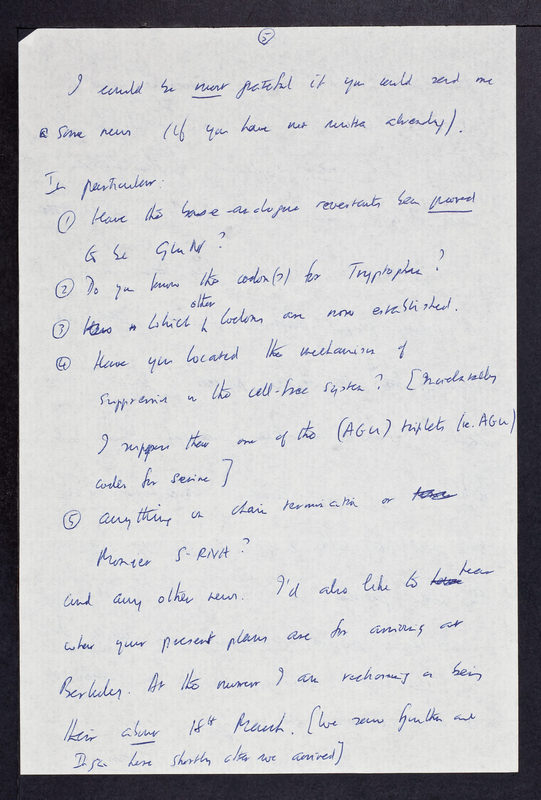 5
I would be most grateful if you could send me
some news (if you have not written already).
In particular:
① Have the base-analogue revertants been proved
to be GluN?
② Do you know the codon(s) for Tryptophan?
③ Which other Codons are now established.
④ Have you located the mechanism of
suppression in the cell-free system? [Incidentally
I suppose that one of the (AGU) triplets (i.e. AGU)
codes for serine]
⑤ anything on chain termination or
S-RNA?
and any other news. I'd also like to hear
what your present plans are for arriving at
Berkeley. At the moment I am reckoning on being
there about 18th March. [We saw Gunther and
here shortly after we arrived]